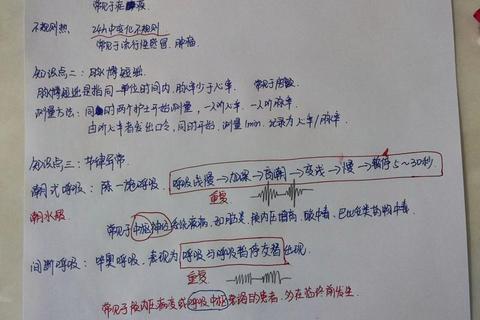 常见于疟疾
不规则热 24h中变化不规则
常见于流行性感冒、肿瘤
知识点二：脉搏短绌
脉搏短绌是指同一单位时间内，脉率少于心率 常见于房颤
测量方法：同时两个护士开始测量，一人听心率 一人听脉率
由听心率者发出口令，同时开始，测量1min，记录为心率/脉率
知识点三：节律异常
潮式呼吸：陈-施呼吸 呼吸浅慢→加深→高潮→变浅→慢→暂停5~30秒
潮水 重复
常见于中枢神经系统疾病，如脑炎、颅内压增高、酸中毒、巴比妥类药物中毒
间断呼吸：毕奥呼吸，表现为呼吸与呼吸暂停交替出现
重复
常见于颅内压病变或呼吸中枢衰竭的患者，多在临终前发生